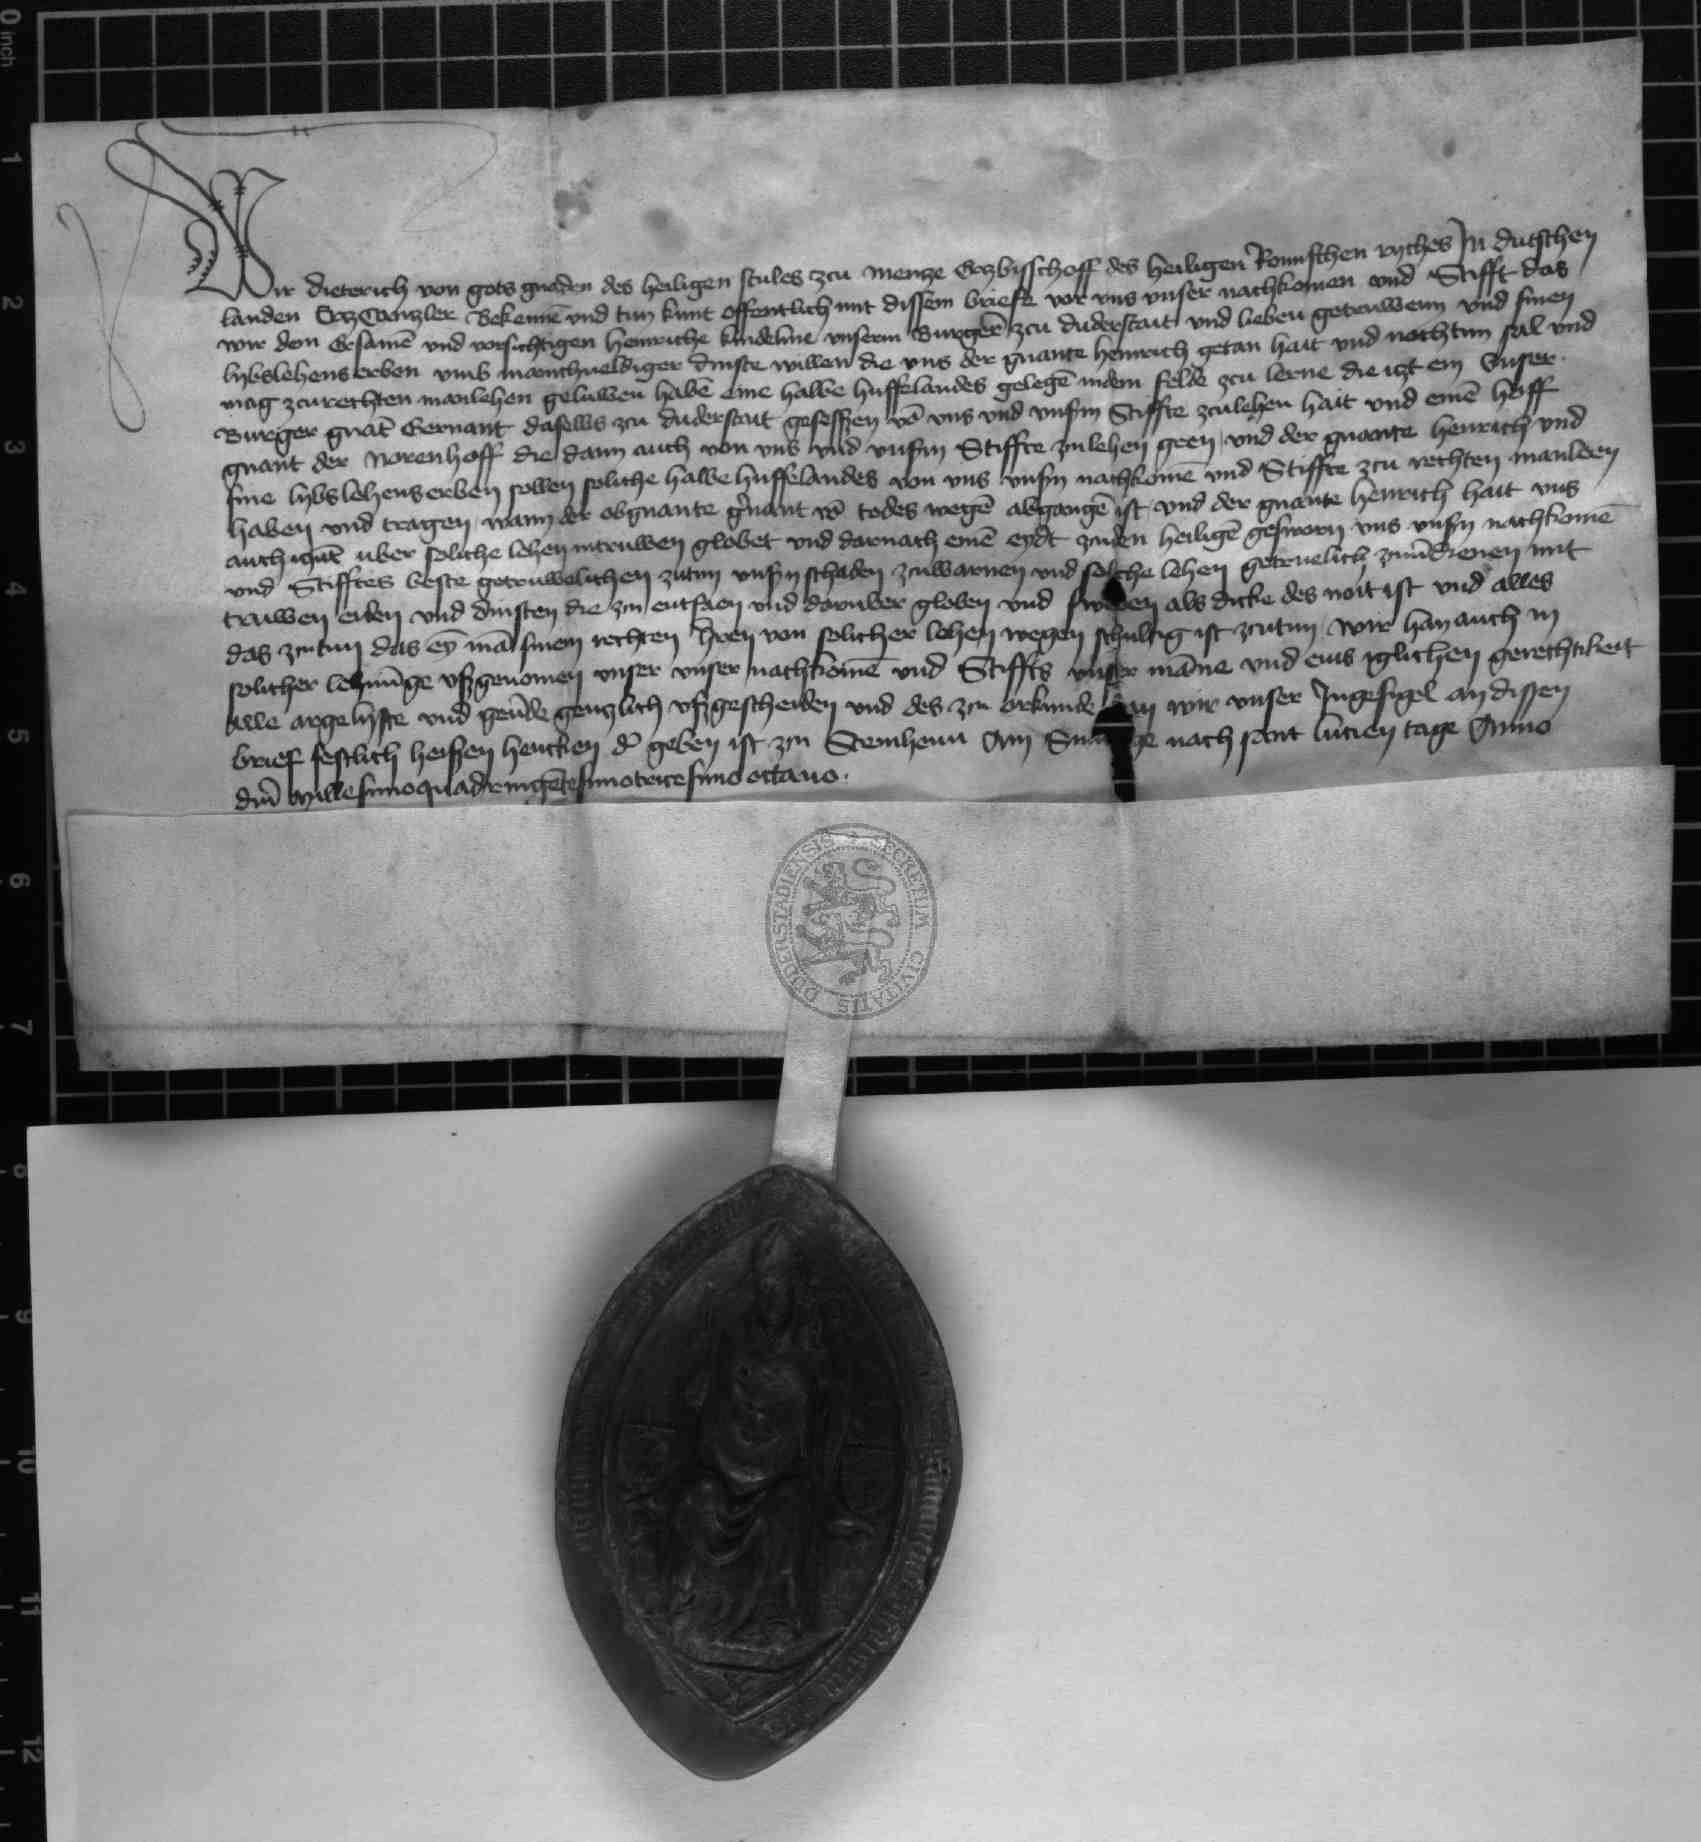 Wir dieterich von gots gnaden des heiligen stules zcu Mentze Ertzbisschoff des heiligen Romischen ryches In dutschen
landen Ertzcanzler Bekennē vnd tun kunt offentlich mit dissem briefe vor vns vnser nachkomen vnd Stifft das
wir dem Ersamē vnd vorsichtigen henriche kindeline vnserm Burgere zcu duderstait vnd lieben getruwenn vnd sinen
lybslehens erben vmb manchueldiger dinste willen die vns der gnante henrich getan hait vnd noch tun sal vnd
mag zcurechten manlehen geluwen habē eine halbe huffelandes gelegē indem felde zcu lerne die itzt ein vnser
Burger gnāt Gernant daselbs zcu duderstait gesessen vō vns vnd vnsm Stiffte zculehen hait vnd einē hoff
gnant der Norenhoff die dann auch von vns vnd vnsm Stiffte zulehen geen vnd der gnante henrich vnd
sine lybslehenserben sollen soliche halbe huffelandes von vns vnsn nachkomē vnd Stiffte zcu rechten manleen
haben vnd tragen wann der obgnante gnant vō todes wegē abgangē ist vnd der gnante henrich hait vns
auch itzūt uber soliche lehen intruwen globet vnd darnach einē eydt zuden heiligē gesworn vns vnsn nachkomē
vnd Stifftes beste getruwelichen zutun vnsn schaden zcuwarnen vnd solche lehen getruelich zuuerdienen mit
truwen eiden vnd dinsten die zcu entfaen vnd darvber globen vnd sweren als dicke des noit ist vnd alles
das zcutun das ey mā sinem rechten hern von solicher lehen wegen schultig ist zcutun wir han auch in
solicher lehnūge vßgenomen vnser vnser nachkomē vnd Stiffts vnser māne vnd eins iglichen gerechtikeit
Alle argelyste vnd geuerde gentzlich vßgescheiden vnd des zcu orkunde han wir vnser Ingesigel an dissen
brief festlich heissen hencken dr geben ist zcu Steinheim Am nach sant lucien tage Anno
dm Millesimoquadringētesimotricesimo octauo.
SECRETUM CIVITATIS DUDERSTADIENSIS
0 inch
1
2
3
4
5
6
7
8
9
10
11
12